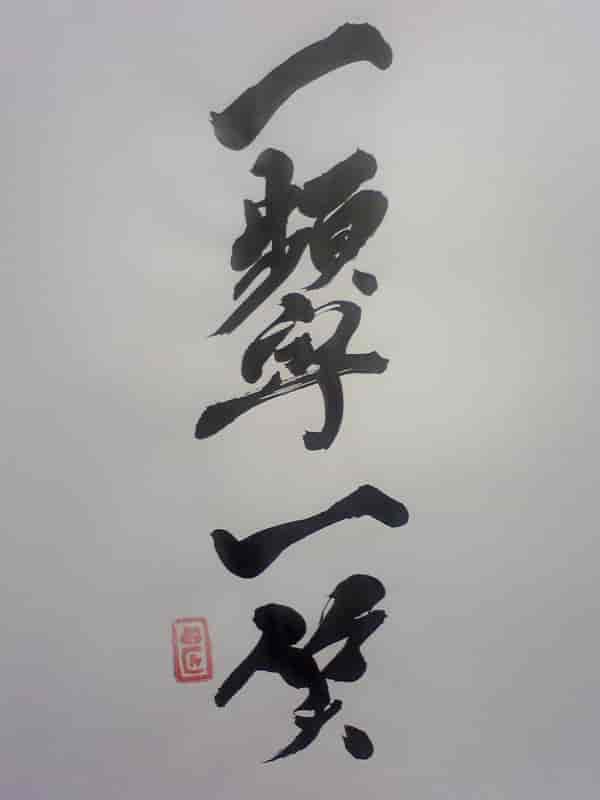 一顰一笑